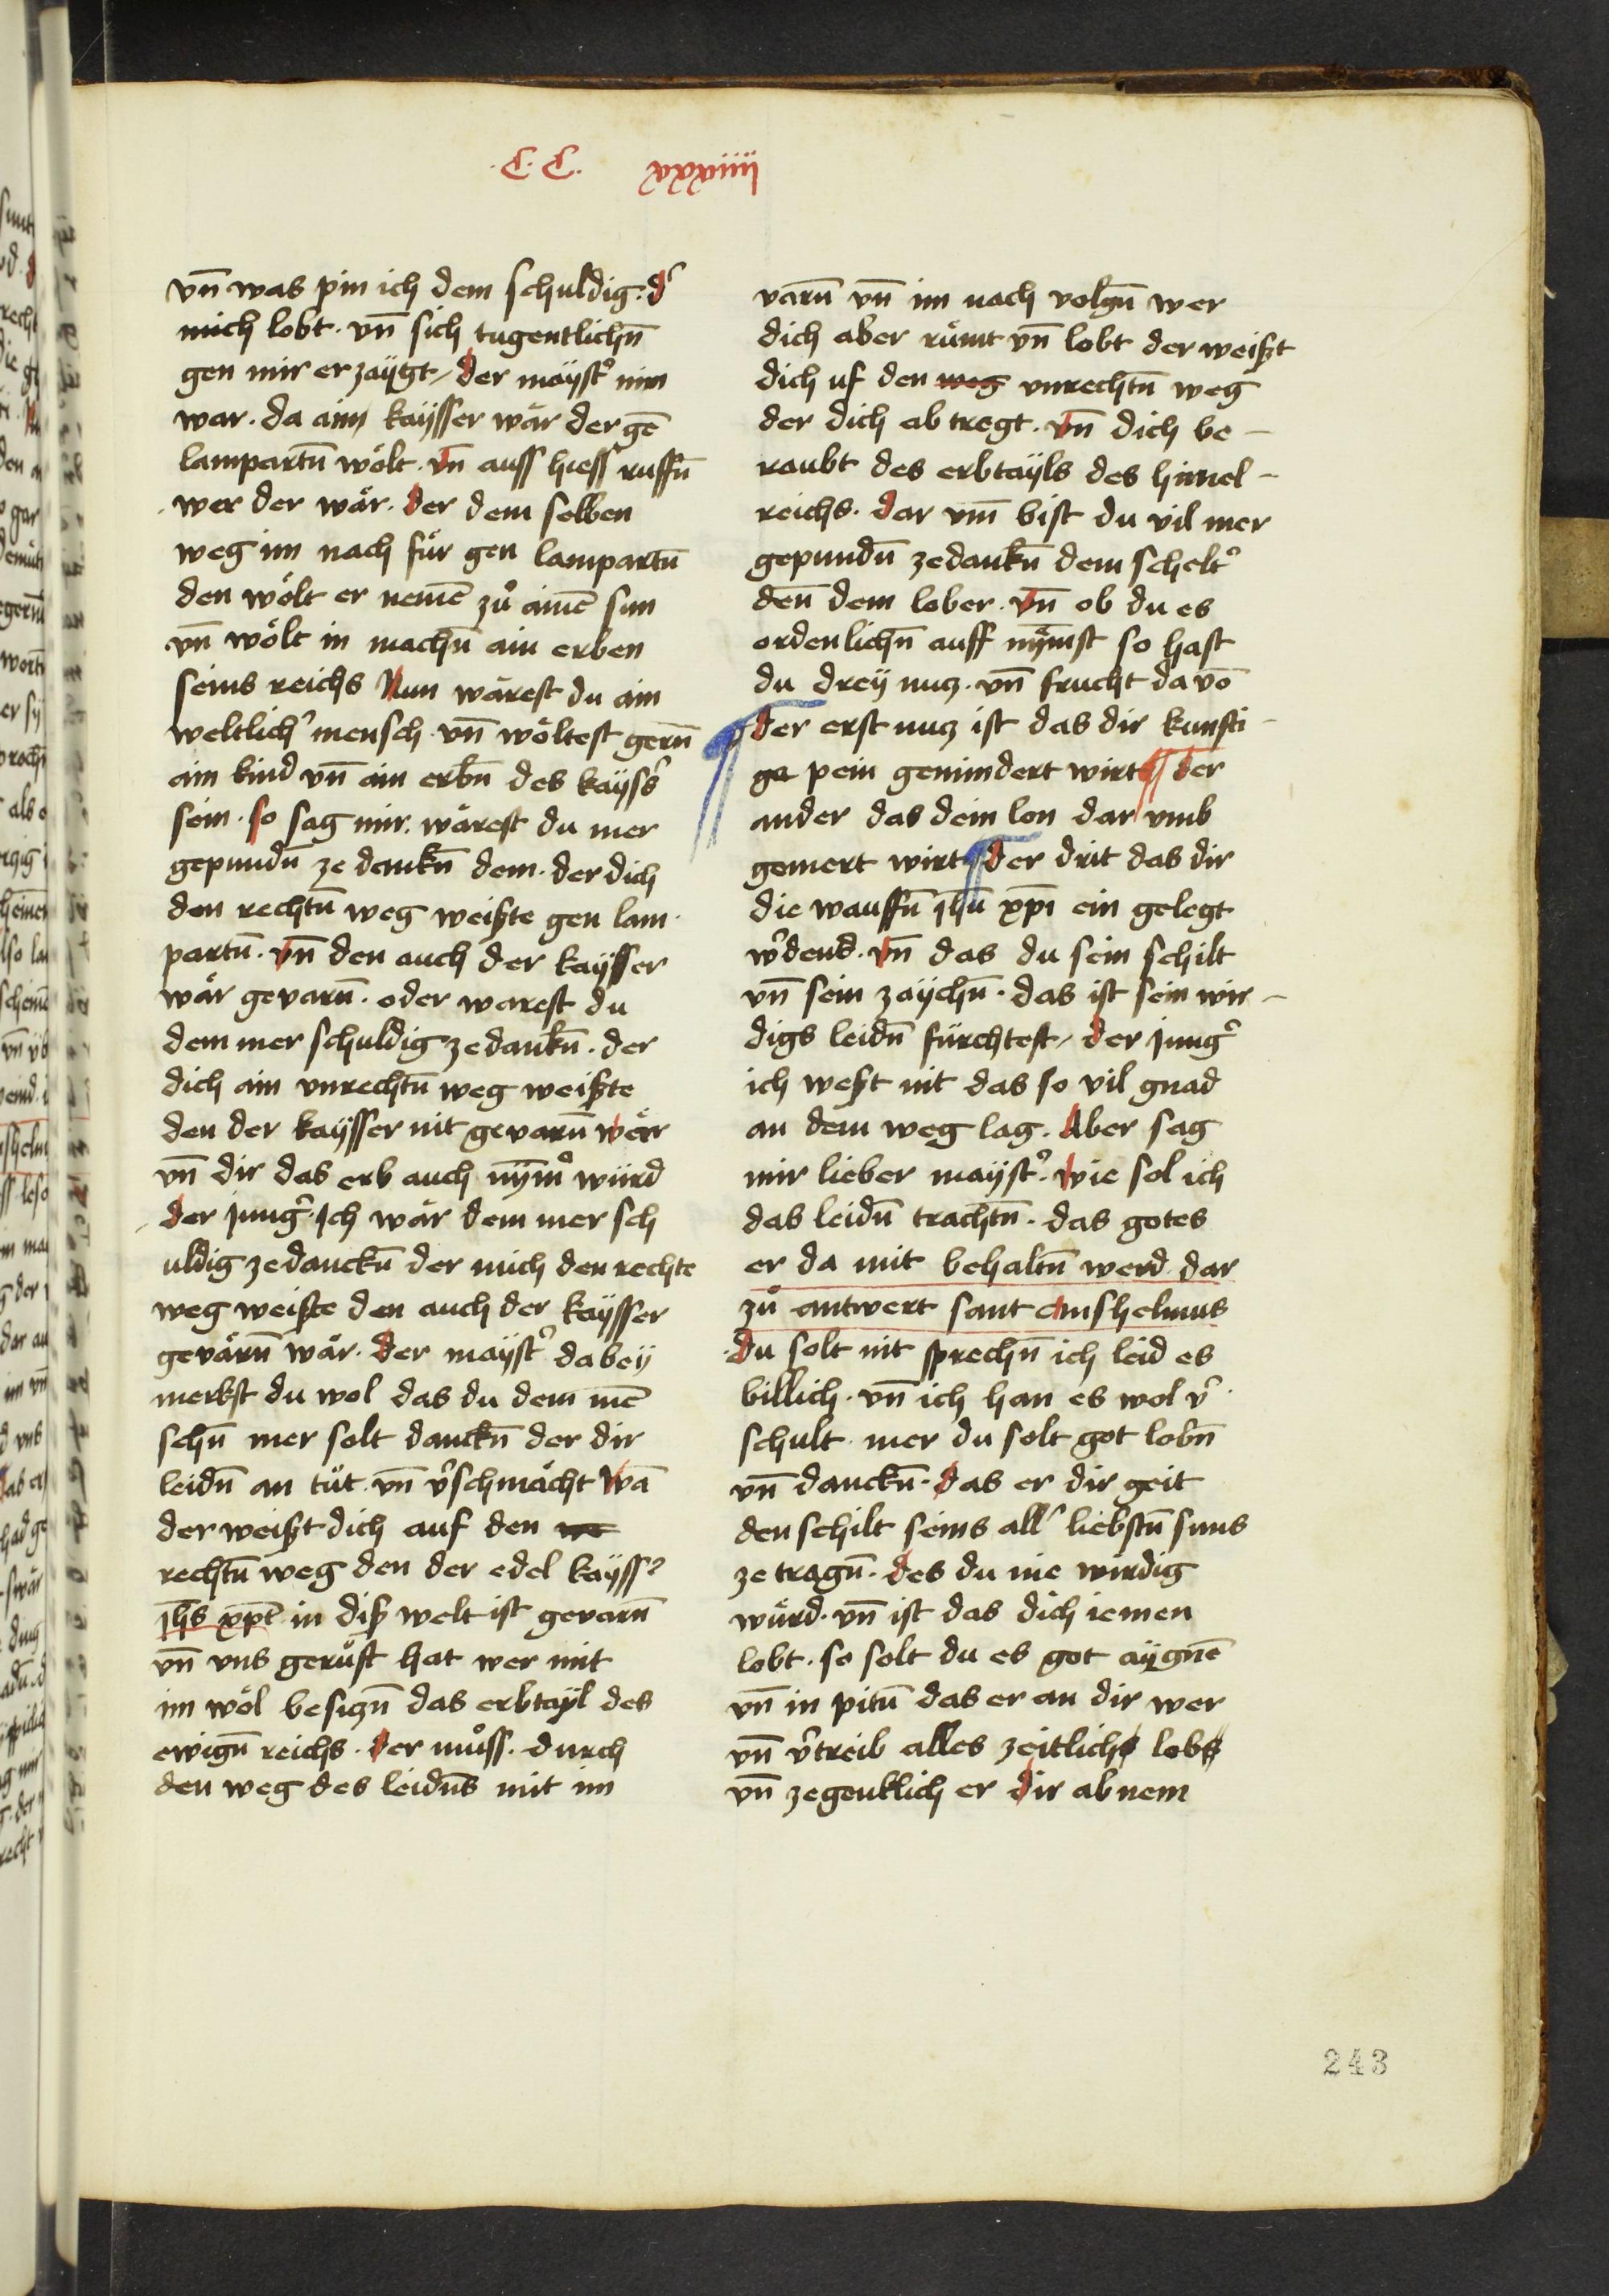 .C.C. xxxiiii
vn̄ was pin ich dem schuldig. d'
mich lobt. vn̄ sich tugentlichn̄
gen mir erzaÿgt / der maÿst' nim
war. da ainn kaÿsser wär der gē
lampartn̄ wölt. vn̄ auss hiess ruffn̄
wer der wär. der dem selben
weg im nach für gen lampartn̄
den wölt er nemē zů ainē sun
vn̄ wölt in machn̄ ain erben
seins reichs Nun wärest du ain
weltlich' mensch vn̄ wöltest gern̄
ain kind vn̄ ain erbn̄ des kaÿss's
sein. so sag mir. wärest du mer
gepundn̄ ze dankn̄ dem. der dich
den rechtn̄ weg weißte gen lam
partn̄. vn̄ den auch der kaÿsser
wär gevarn̄. oder warest du
dem mer schuldig zedankn̄. der
dich ain vnrechtn̄ weg weißte
den der kaÿsser nit gevarn̄ wär
vn̄ dir das erb auch nÿm̄' würd
der jung' Ich wär dem mer sch
uldig zedanckn̄ der mich den rechte
weg weißte den auch der kaÿsser
gevärn̄ wär. der maÿst' dabeÿ
merkst du wol das du dem mē
schn̄ mer solt danckn̄ der dir
leidn̄ an tüt. vn̄ v'schmächt Wā
der weißt dich auf den
rechtn̄ weg den der edel kaÿss'
jhs xp̄t in diß welt ist gevarn̄
vn̄ vns gerüft hat wer mit
im wöl besiczn̄ das erbtaÿl des
ewign̄ reichs. der můss. durch
den weg des leidn̄s mit im
varn̄ vn̄ im nach volgn̄ wer
dich aber rümt vn̄ lobt der weißt
dich uf den weg vnrechtn̄ weg
der dich ab tregt. vn̄ dich be -
raubt des erbtaÿls des himel -
reichs. dar vm̄ bist du vil mer
gepundn̄ zedankn̄ dem schelt'
den̄ dem lober. vn̄ ob du es
ordenlichn̄ auff nÿmst so hast
du dreÿ nucz. vn̄ frucht da vō
¶ der erst nucz ist das dir kunfti -
ge pein gemindert wirt ¶ der
ander das dein lon dar vmb
gemert wirt ¶ der drit das dir
die wauffn̄ jhū xp̄i ein gelegt
w'dend. vn̄ das du sein schilt
vn̄ sein zaÿchn̄. das ist sein wir -
digs leidn̄ fürchtest / der jung'
ich weßt nit das so vil gnad
an dem weg lag. Aber sag
mir lieber maÿst'. wie sol ich
das leidn̄ trachtn̄. das gotes
er da mit behaltn̄ werd. dar
zů antwert sant anshelmus
du solt nit sprechn̄ ich leid es
billich. vn̄ ich han es wol v'
schult. mer du solt got lobn̄
vn̄ danckn̄. das er dir geit
den schilt seins all' liebstn̄ suns
ze tragn̄. des du nie wirdig
würd. vn̄ ist das dich iemen
lobt. so solt du es got aÿgnē
vn̄ in pitn̄ das er an dir wer
vn̄ v'treib alles zeitlichs lobs
vn̄ zegenklich er dir ab nem
243